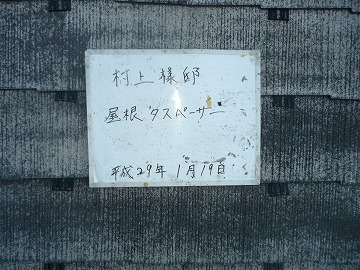 村上様邸
屋根タスペーサー
平成29年1月19日